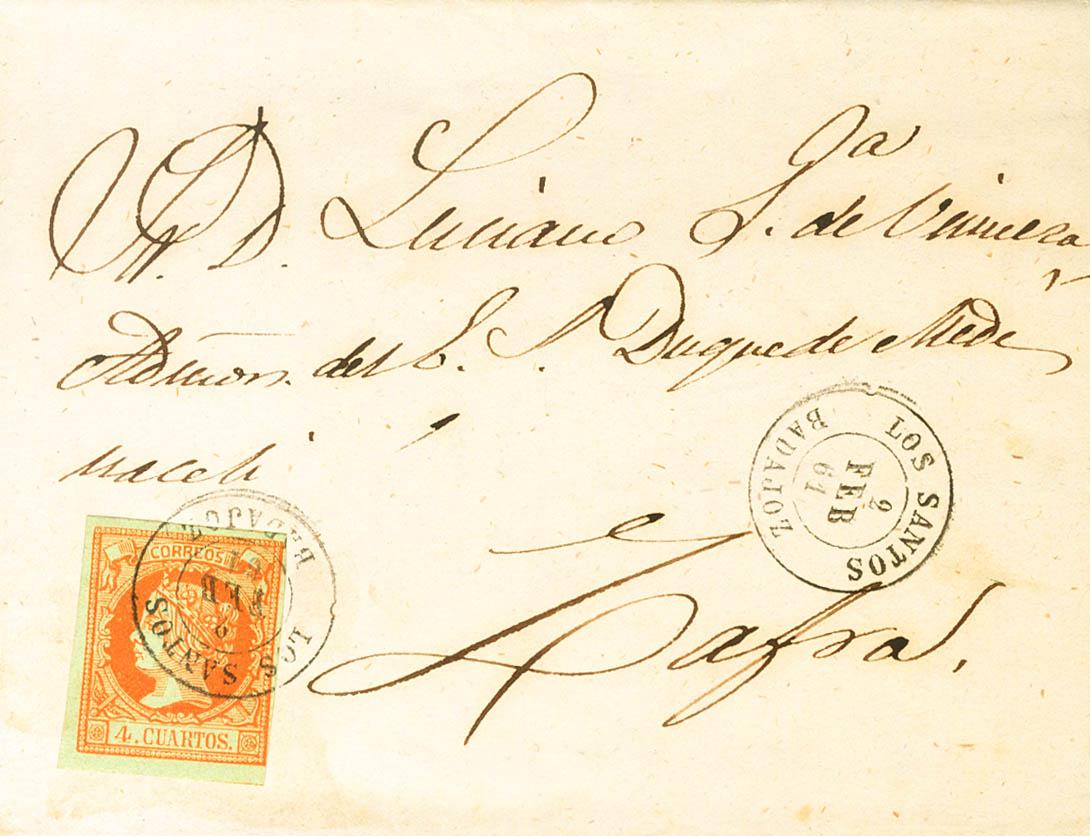 Sr. D. Luciano G.ª de Viniesa
Admor. del E. S. Duque de Medi
naceli
Zafra.
LOS SANTOS
2
FEB
61
BADAJOZ
CORREOS
4. CUARTOS.
LOS SANTOS
2
FEB
BADAJOZ